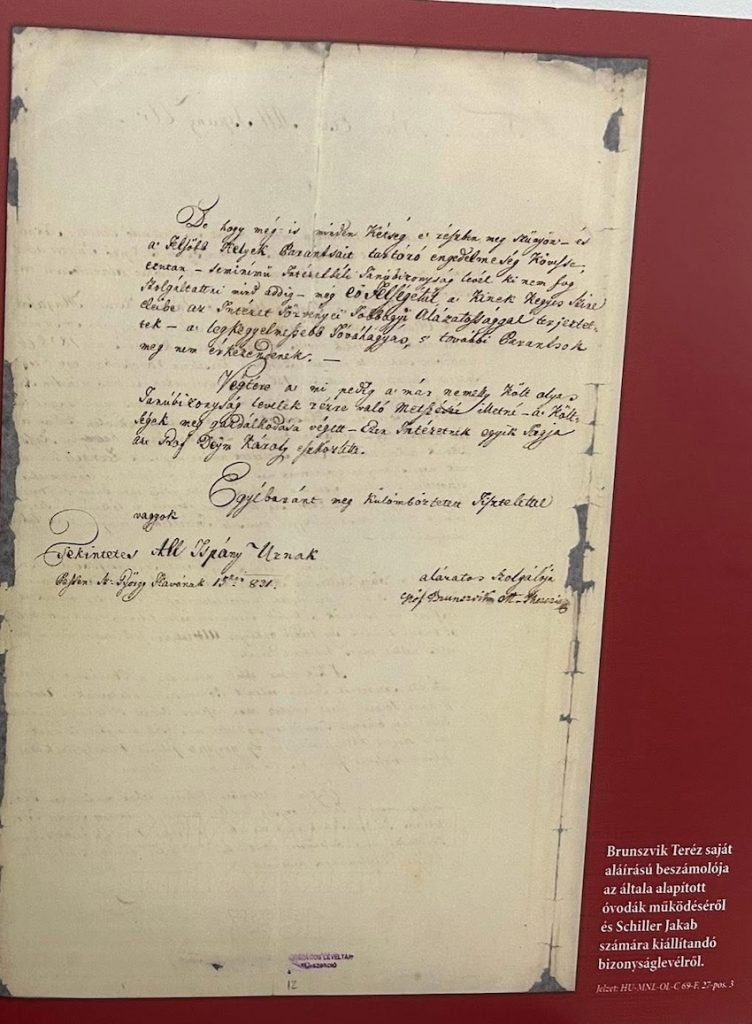 De hogy még is minden Kétség e részben meg szünjön – és
a Felsőbb Helyek Parantsait tartozó engedelmeség Kövesse,
ezután – seminémű Intézetbéli Tanúbizonyság levél ki nem fog
Szolgáltatni mind addig – még Eő Felségétűl a Kinek Kegyes Szine
eleibe az Intézet Törvényei Jobbágyi Alázatossággal terjesztet-
tek – a legkegyelmesebb Jóváhagyás, 's további Parantsok
meg nem érkezendenek. —
Végtére a mi pedig a már némely Költ olyas
Tanúbizonyság levelek rézre való Metszését illetni – a Költ-
ségek meg gazdálkodása végett – Ezen Intézetnek egyik Tagja
Gróf Deÿm Károly eszközlötte.
Egyébaránt meg Külömböztetett Tisztelettel
vagyok
Tekintetes All Ispány Urnak
Pesten Sz. György Havának 15 831.
alázatos Szolgálója
Gróf Brunszvikn Theresia
ORSZÁGOS LEVÉLTÁR
12
Brunszvik Teréz saját
aláírású beszámolója
az általa alapított
óvodák működéséről
és Schiller Jakab
számára kiállítandó
bizonyságlevélről.
Jelzet: HU-MNL-OL-C 69-F. 27-pos. 3